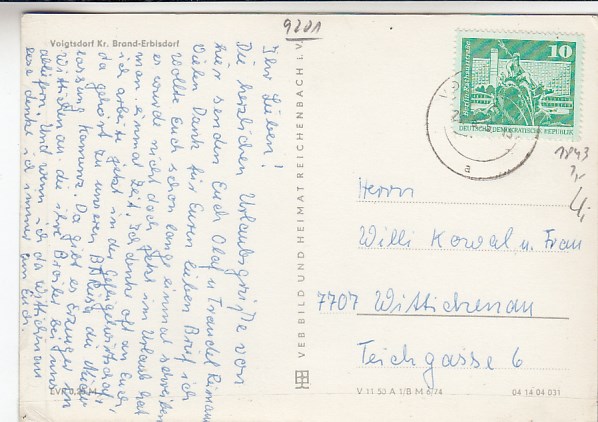 9201
Voigtsdorf Kr. Brand-Erbisdorf
Ihr Lieben!
Die herzlichen Urlaubsgrüße von
hier senden Euch Olaf u. Traudel
Vielen Dank für Euren lieben Brief ich
wollte Euch schon lange einmal schreiben
es wurde nicht doch jetzt im Urlaub hat
man einmal Zeit. Ich denke oft an Euch
ich arbeite jetzt in der Geflügelwirtschaft
da gehört zu unseren die Nieder
lassung Kamenz. Da gibt es Erzeuger in
Wittichenau die ihre Broiler bei uns
abliefern. Und wenn ich da Wittichenau
lese denke ich immer an Euch.
EVP 0,20 M
VEB BILD UND HEIMAT REICHENBACH I. V.
10
Berlin, Rathausstraße
DEUTSCHE DEMOKRATISCHE REPUBLIK
a
1843
4,-
Herrn
Willi Kowal u. Frau
7707 Wittichenau
Teichgasse 6
V 11 50 A 1/B M 6/74
04 14 04 031